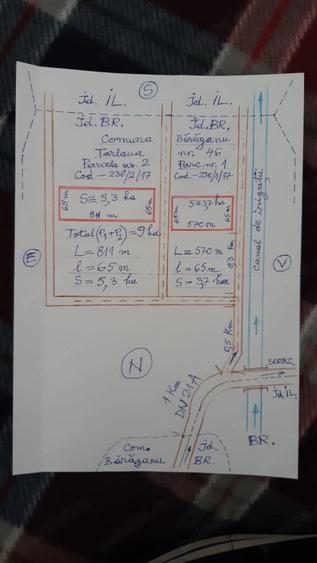 Jd. İL.
S
Jd. İL.
Jd. BR.
Jd. BR.
Comuna
Bărăganu
Tarlaua
nr. 46
Parcela nr. 2
Parc. nr. 1
Cod. - 230/2/17
Cod. - 230/1/17
65 m
S≅ 5,3 ha
65 m
811 m
65m
S≅ 3,7 ha
65m
570 m
Total (P1+P2) = 9 ha
L = 811 m
l = 65 m
S = 5,3 ha
L = 570 m
l = 65m
S = 3,7 ha
0,3 Km
Canal de irigații
E
V
N
0,5 Km
1 Km
DN 21-A
Jd. İL.
BR.
Com.
Bărăganu
Jd.
BR.